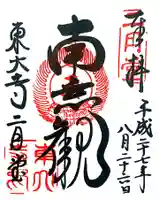 奉拝
平成二十七年
八月二十二日
南無観
東大寺 二月堂